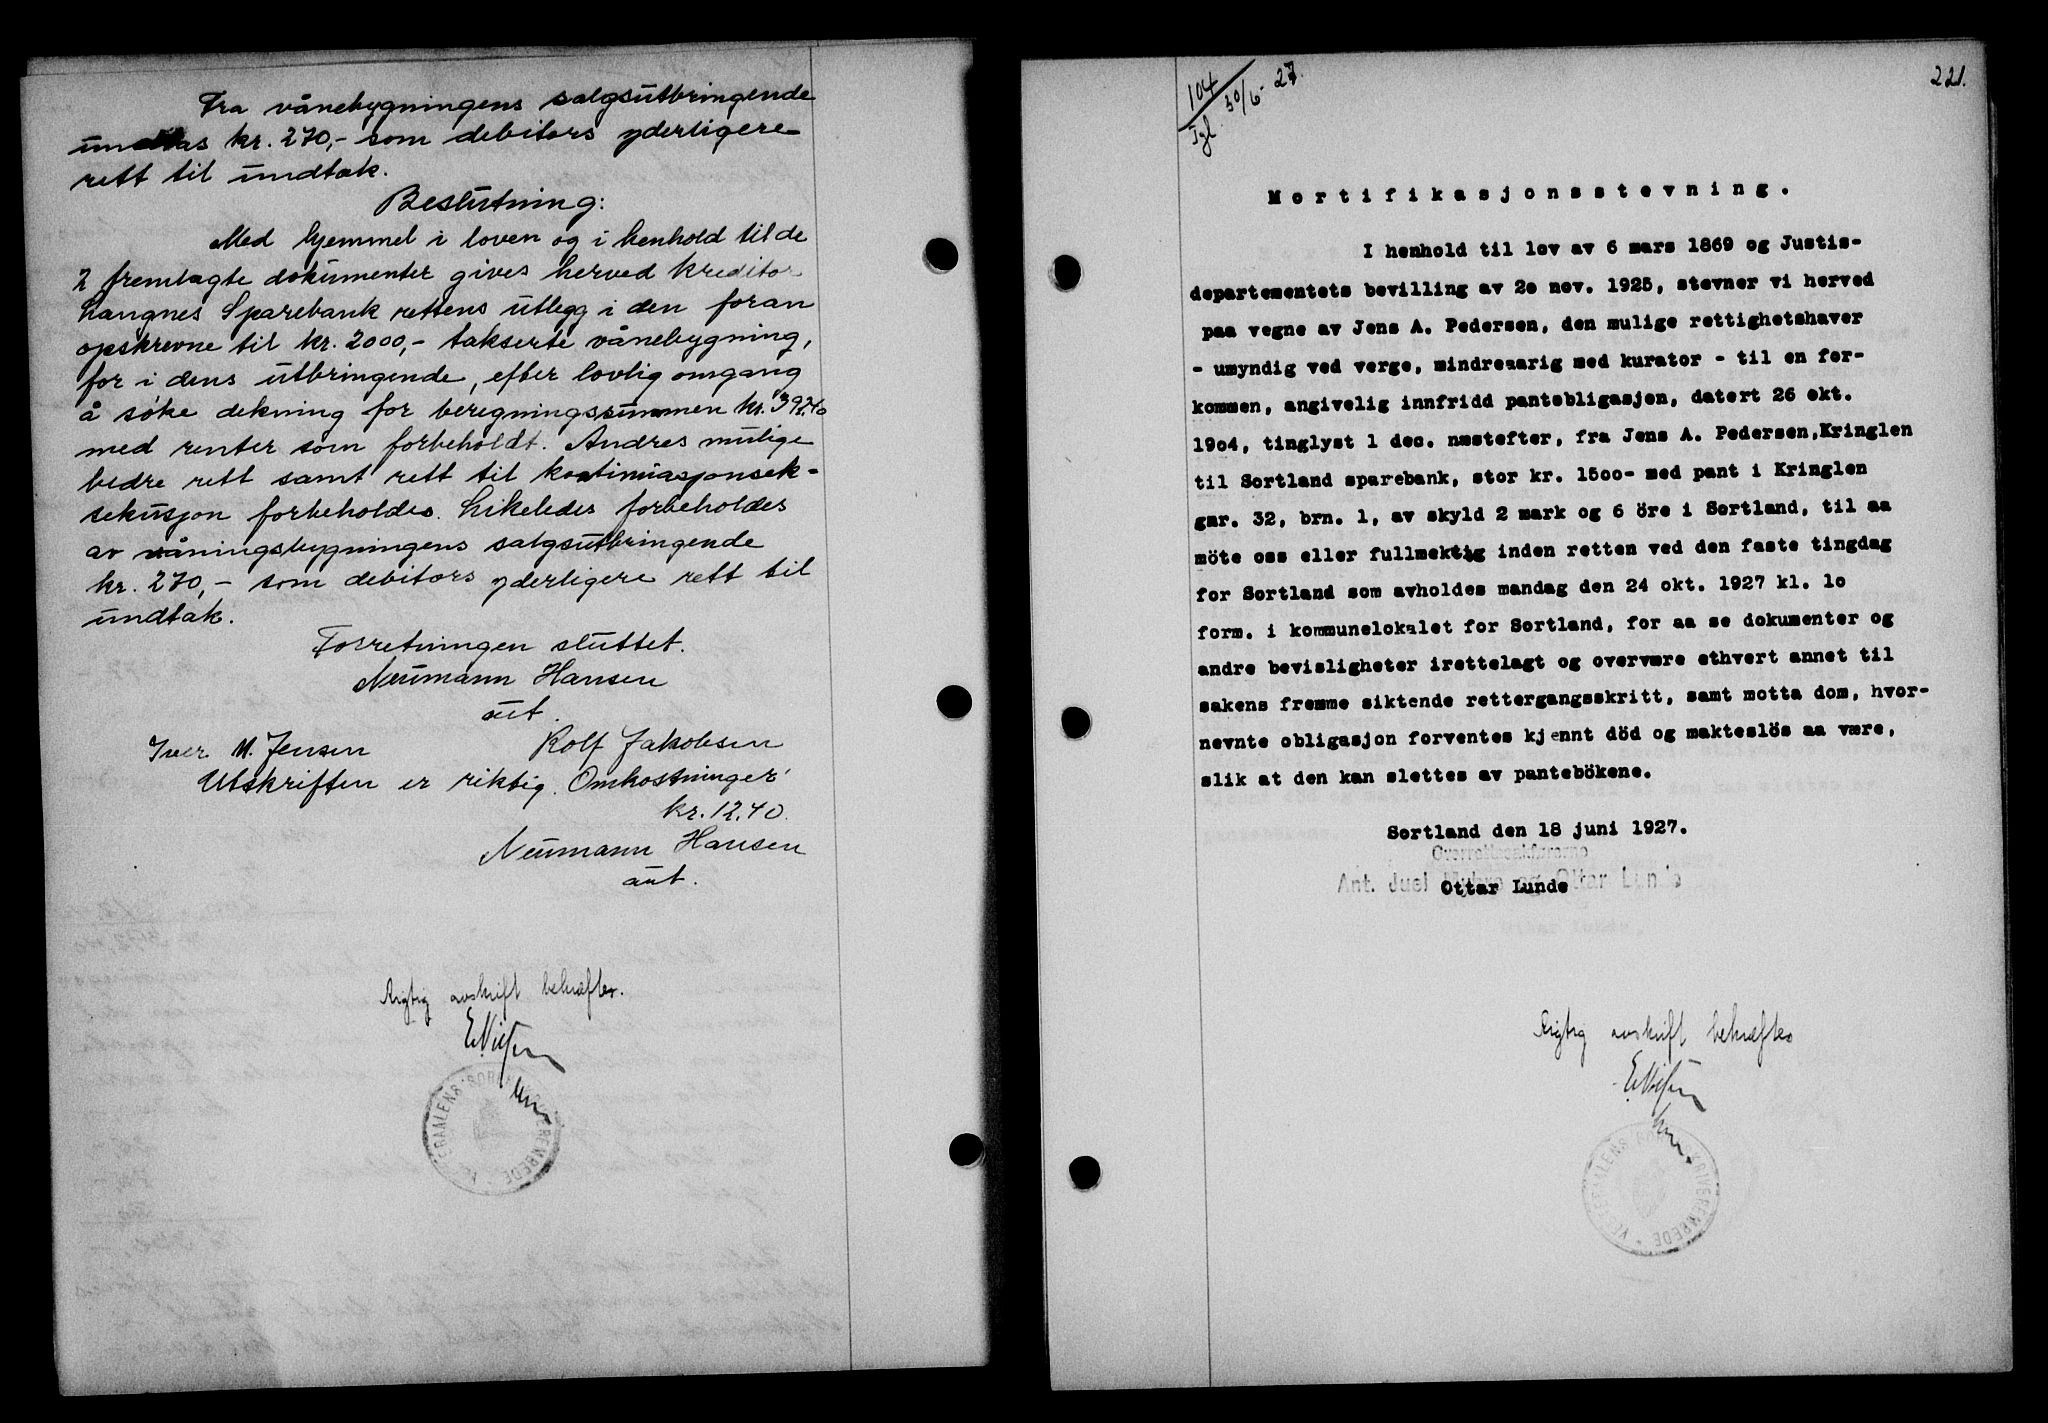 Fra vånebygningens salgsutbringende
undtas kr. 270,- som debitors yderligere
rett til undtak.
Beslutning:
Med hjemmel i loven og i henhold til de
2 fremlagte dokumenter gives herved kreditor
Langnes Sparebank rettens utlegg i den foran
opskrevne til kr. 2000,- takserte vånebygning,
for i dens utbringende, efter lovlig omgang
å søke dekning for beregningssummen kr.
med renter som forbeholdt. Andres mulige
bedre rett samt rett til kontinuasjonsek-
sekusjon forbeholdes. Likeledes forbeholdes
av våningsbygningens salgsutbringende
kr. 270,- som debitors yderligere rett til
undtak.
Forretningen sluttet.
Neumann Hansen
aut.
Iver M. Jensen Rolf Jakobsen
Utskriften er riktig. Omkostninger
kr. 12.40.
Neumann Hansen
aut.
Rigtig avskrift bekræftes.
104 30/6-27.
Jgl.
221.
Mortifikasjonsstevning.
I henhold til lov av 6 mars 1869 og Justis-
departementets bevilling av 2o nov. 1925, stevner vi herved
paa vegne av Jens A. Pedersen, den mulige rettighetshaver
- umyndig ved verge, mindreaarig med kurator - til en for-
kommen, angivelig innfridd pantobligasjon, datert 26 okt.
19o4, tinglyst 1 dec. næstefter, fra Jens A. Pedersen,Kringlen
til Sortland sparebank, stor kr. 15oo- med pant i Kringlen
gnr. 32, brn. 1, av skyld 2 mark og 6 öre i Sortland, til aa
möte oss eller fullmektig inden retten ved den faste tingdag
for Sortland som avholdes mandag den 24 okt. 1927 kl. 1o
form. i kommunelokalet for Sortland, for aa se dokumenter og
andre bevisligheter irettelagt og overvære ethvert annet til
sakens fremme siktende rettergangsskritt, samt motta dom, hvor-
nevnte obligasjon forventes kjennt död og makteslös aa være,
slik at den kan slettes av pantebökene.
Sortland den 18 juni 1927.
Overrettssakførerne
Ant. Juel og Ottar Lunde
Ottar Lunde
Rigtig avskrift bekræftes